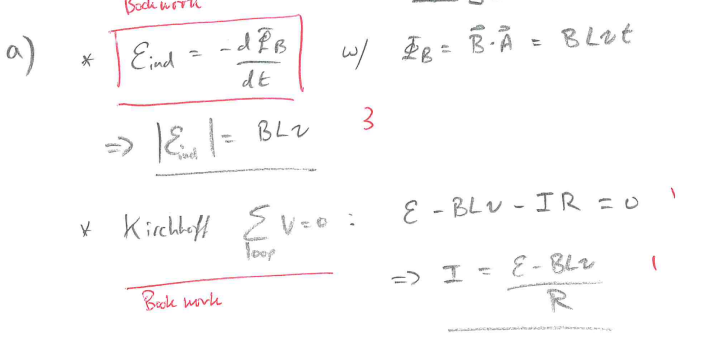 Book work
a) * Ɛind = -dΦB/dt w/ ΦB = B⃗·A⃗ = BLvt
⇒ |Ɛind| = BLv 3
* Kirchhoff ΣV=0 : Ɛ - BLv - IR = 0 1
loop
⇒ I = Ɛ-BLv/R 1
Book work